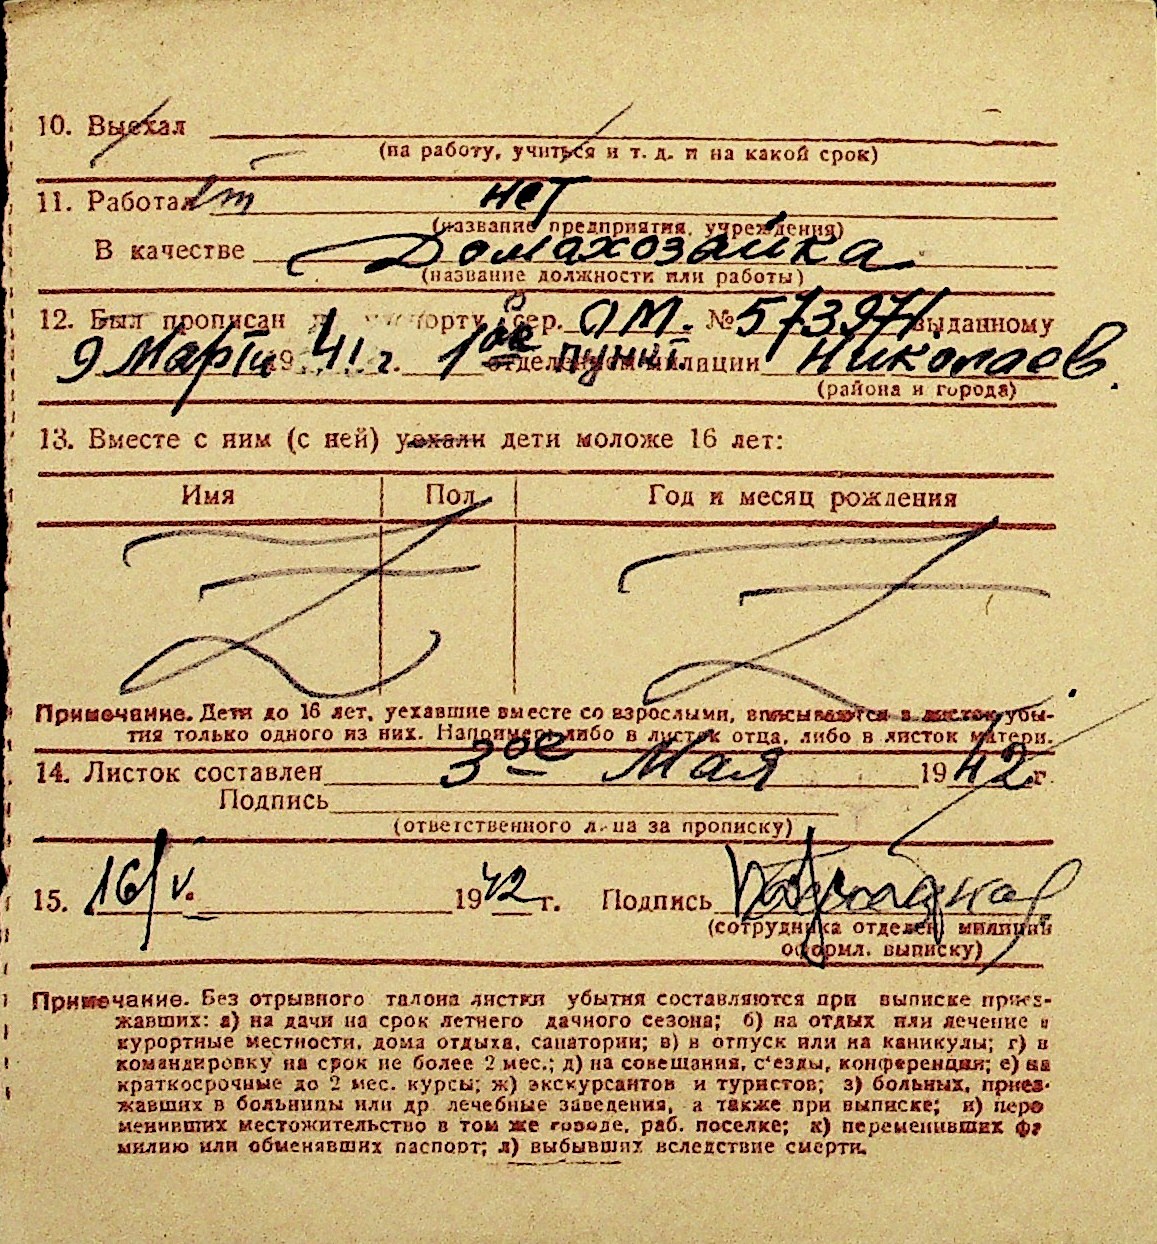 10. Выехал
(на работу, учиться и т. д. и на какой срок)
11. Работает нет
(название предприятия, учреждения)
В качестве Домахозайка
(название должности или работы)
12. Был прописан по паспорту сер. ОМ. № 573971 выданному
9 Марта 1941 г. 1ое пункт. отделением милиции Николаев.
(района и города)
13. Вместе с ним (с ней) уехали дети моложе 16 лет:
Имя Пол Год и месяц рождения
Примечание. Дети до 16 лет, уехавшие вместе со взрослыми, вписываются в листок убы-
тия только одного из них. Например: либо в листок отца, либо в листок матери.
14. Листок составлен 3ое Мая 1942 г.
Подпись
(ответственного лица за прописку)
15. 16/V. 1942 г. Подпись
(сотрудника отделен. милиции
оформл. выписку)
Примечание. Без отрывного талона листки убытия составляются при выписке приез-
жавших: а) на дачи на срок летнего дачного сезона; б) на отдых или лечение в
курортные местности, дома отдыха, санатории; в) в отпуск или на каникулы; г) в
командировку на срок не более 2 мес.; д) на совещания, с'езды, конференции; е) на
краткосрочные до 2 мес. курсы; ж) экскурсантов и туристов; з) больных, приез-
жавших в больницы или др лечебные заведения, а также при выписке; и) пере
менивших местожительство в том же городе, раб. поселке; к) переменивших фа
милию или обменявших паспорт; л) выбывших вследствие смерти.